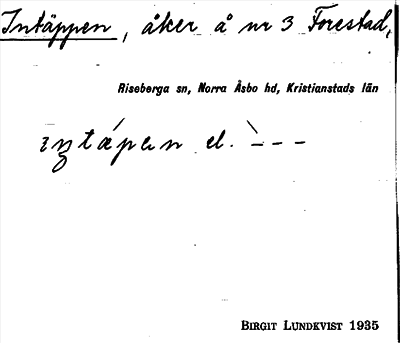 Intäppen, åker å nr 3 Forestad,
Riseberga sn, Norra Åsbo hd, Kristianstads län
el. `---
BIRGIT LUNDKVIST 1935